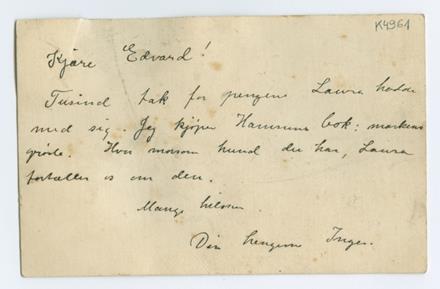 K4961
Kjære Edvard!
Tusind tak for pengene Laura hadde
med sig. Jeg kjøper Hamsuns bok: markens
grøde. Hvor morsom hund du har, Laura
fortæller os om den.
Mange hilsner.
Din hengivne Inger.